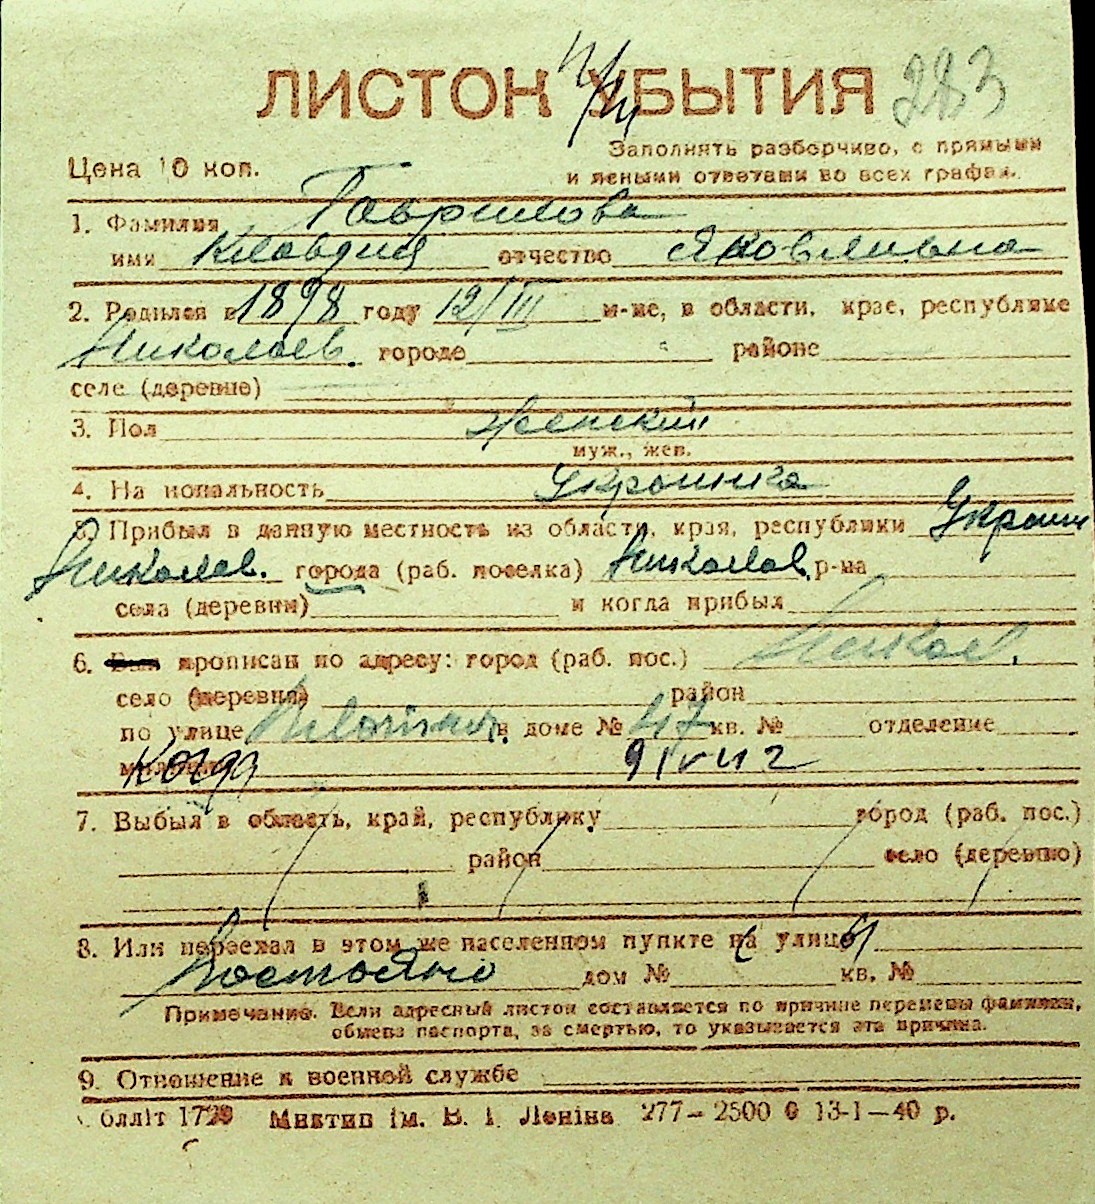 ЛИСТОК УБЫТИЯ 283
Цена 10 коп.
Заполнять разборчиво, с прямыми
и ясными ответами во всех графах.
1. Фамилия Гаврилова
имя Клавдия отчество Яковлевна
2. Родился в 1898 году 12/III м-це, в области, крае, республике
Николаев. городе районе
селе (деревне)
3. Пол Женский
муж., жен.
4. Национальность Украинка
5. Прибыл в данную местность из области, края, республики Украин
Николаев. города (раб. поселка) Николаев. р-на
села (деревни) и когда прибыл
6. Был прописан по адресу: город (раб. пос.) Никол.
село (деревня) район
по улице в доме № 47 кв. № отделение
милиции Когда
7. Выбыл в область, край, республику город (раб. пос.)
район село (деревню)
8. Или переехал в этом же населенном пункте на улицу
Постояно дом № кв. №
Примечание. Если адресный листок составляется по причине перемены фамилии,
обмена паспорта, за смертью, то указывается эта причина.
9. Отношение к военной службе
облліт 1729 Миктип ім. В. І. Леніна 277—2500 0 13-1—40 р.